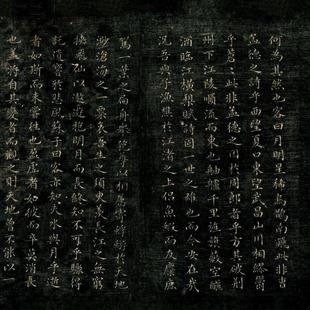 何為其然也客曰月明星稀烏鵲南飛此非曹
孟德之詩乎西望夏口東望武昌山川相繆鬱
乎蒼蒼此非孟德之困於周郎者乎方其破荊
州下江陵順流而東也舳艫千里旌旗蔽空釃
酒臨江橫槊賦詩固一世之雄也而今安在哉
況吾與子漁樵於江渚之上侶魚蝦而友麋鹿
駕一葉之扁舟舉匏樽以相屬寄蜉蝣於天地
渺滄海之一粟哀吾生之須臾羨長江之無窮
挾飛仙以遨遊抱明月而長終知不可乎驟得
託遺響於悲風蘇子曰客亦知夫水與月乎逝
者如斯而未嘗往也盈虛者如彼而卒莫消長
也蓋將自其變者而觀之則天地曾不能以一